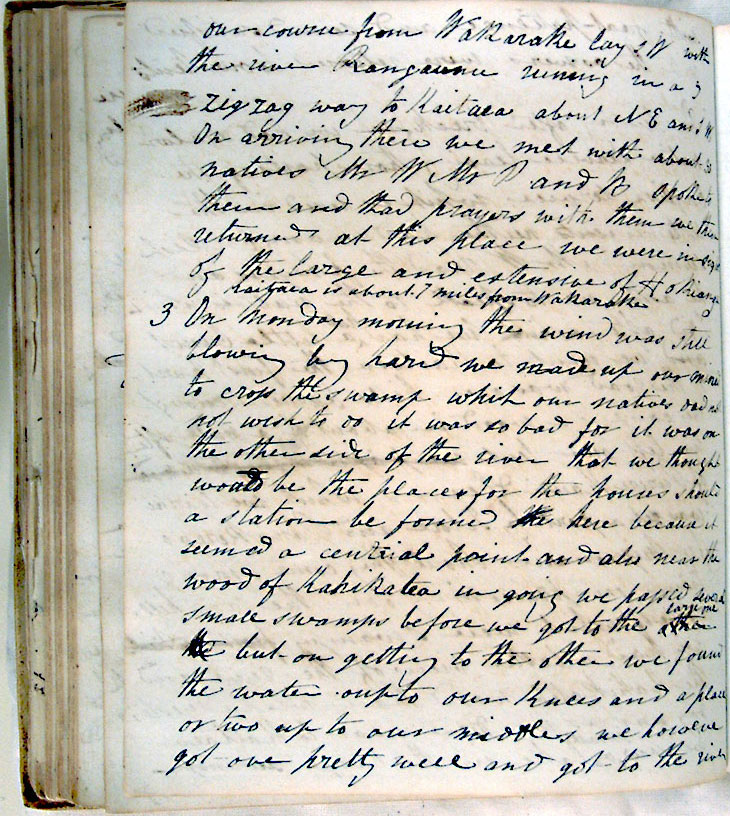 our course from Wakarake lay S W with
the river Rangaunu running in a
zigzag way to Kaitaea about N E and S W
On arriving there we met with about
natives Mr W Mr P and B spoke to
them and had prayers with them we then
returned at this place we were in sight
of the large and extensive of Hokianga
Kaitaea is about 7 miles from Wakarake
3 On monday morning the wind was still
blowing by hard we made up our
to cross the swamp which our natives did not
not wish to do it was so bad for it was on
the other side of the river that we thought
would be the place for the houses should
a station be formed here because it
seemed a central point and also near the
wood of Kahikatea in going we passed several
small swamps before we got to the large one
but on getting to the other we found
the water up to our knees and a place
or two up to our middles we however
got over pretty well and got to the river